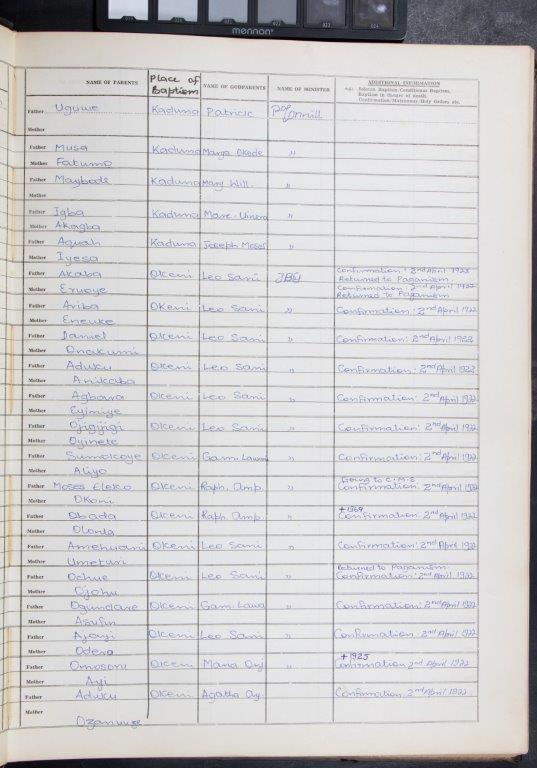 mennon
NAME OF PARENTS Place of Baptism NAME OF GODPARENTS NAME OF MINISTER ADDITIONAL INFORMATION
e.g. Solemn Baptism, Conditional Baptism,
Baptism in danger of death,
Confirmation, Matrimony, Holy Orders etc.
Father Uguwe Kaduna Patrick
Mother
Father Musa Kaduna Okode "
Mother Fatuma
Father Maybode Kaduna Mary Will. "
Mother
Father Igba Kaduna "
Mother Akagba
Father Aquah Kaduna Joseph Moses "
Mother Iyesa
Father Akaba Okeni Leo Sani Confirmation: 2nd April 1922
Returned to Paganism
Mother Confirmation: 2nd April 1922
Returned to Paganism
Father Ariba Okeni Leo Sani " Confirmation: 2nd April 1922
Mother Eneuke
Father Daniel Okeni Leo Sani " Confirmation: 2nd April 1922
Mother Onakumi
Father Aduku Okeni Leo Sani " Confirmation: 2nd April 1922
Mother Anikaba
Father Agbara Okeni Leo Sani " Confirmation: 2nd April 1922
Mother Eyimiye
Father Ojigijigi Okeni Leo Sani " Confirmation: 2nd April 1922
Mother Oyinete
Father Okeni Gam. " Confirmation: 2nd April 1922
Mother Aliyo
Going to C.M.S
Father Moses Eleko Okeni Raph. Amp. " Confirmation. 2nd April 1922
Mother Okoni
+ 1969
Father Obada Okeni Raph. Amp. " Confirmation. 2nd April 1922
Mother Olonla
Father Okeni Leo Sani " Confirmation: 2nd April 1922
Mother Umeturi
Returned to Paganism
Father Ochue Okeni Leo Sani " Confirmation: 2nd April 1922
Mother Ojohu
Father Ogundare Okeni Gam. Lawa " Confirmation: 2nd April 1922
Mother Asufin
Father Ajayi Okeni Leo Sani " Confirmation: 2nd April 1922
Mother Odera
+ 1925
Father Omosoru Okeni Maria " Confirmation 2nd April 1922
Mother Ayi
Father Aduku Okeni Agatha " Confirmation: 2nd April 1922
Mother